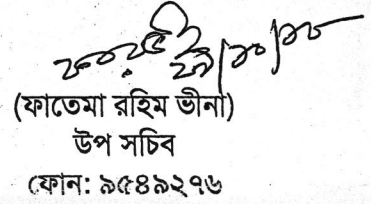 (ফাতেমা রহিম ভীনা)
উপ সচিব
ফোন: ৯৫৪৯২৭৬